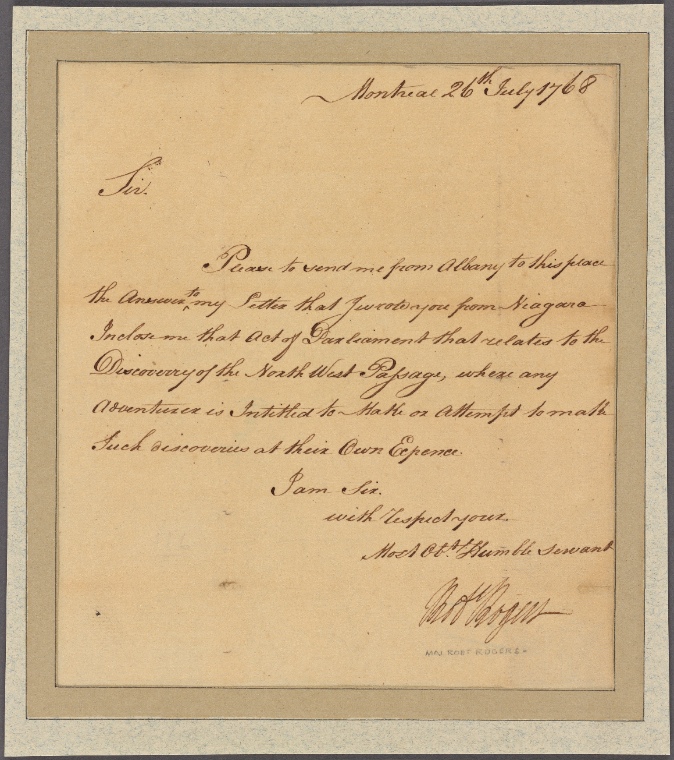 Montreal 26th July 1768
Sir.
Please to send me from Albany to this place
the Answer to my Letter that I wrote you from Niagara
Inclose me that Act of Parliament that relates to the
Discoverry of the North West Passage, where any
Adventurer is Intitled to Make or Attempt to make
Such discoveries at their Own Expence.
I am Sir.
with respect your
Most Obt. Humble servant
Robt Rogers
MAJ. ROBT ROGERS.